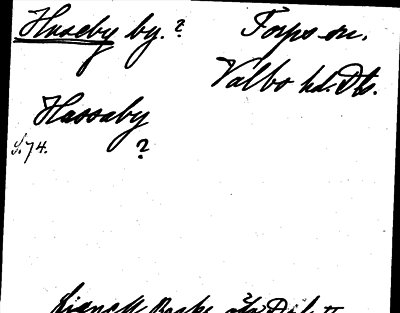 Huseby by.?
Torps sn.
Valbo hd. Dls.
Hassaby
?
S. 74.